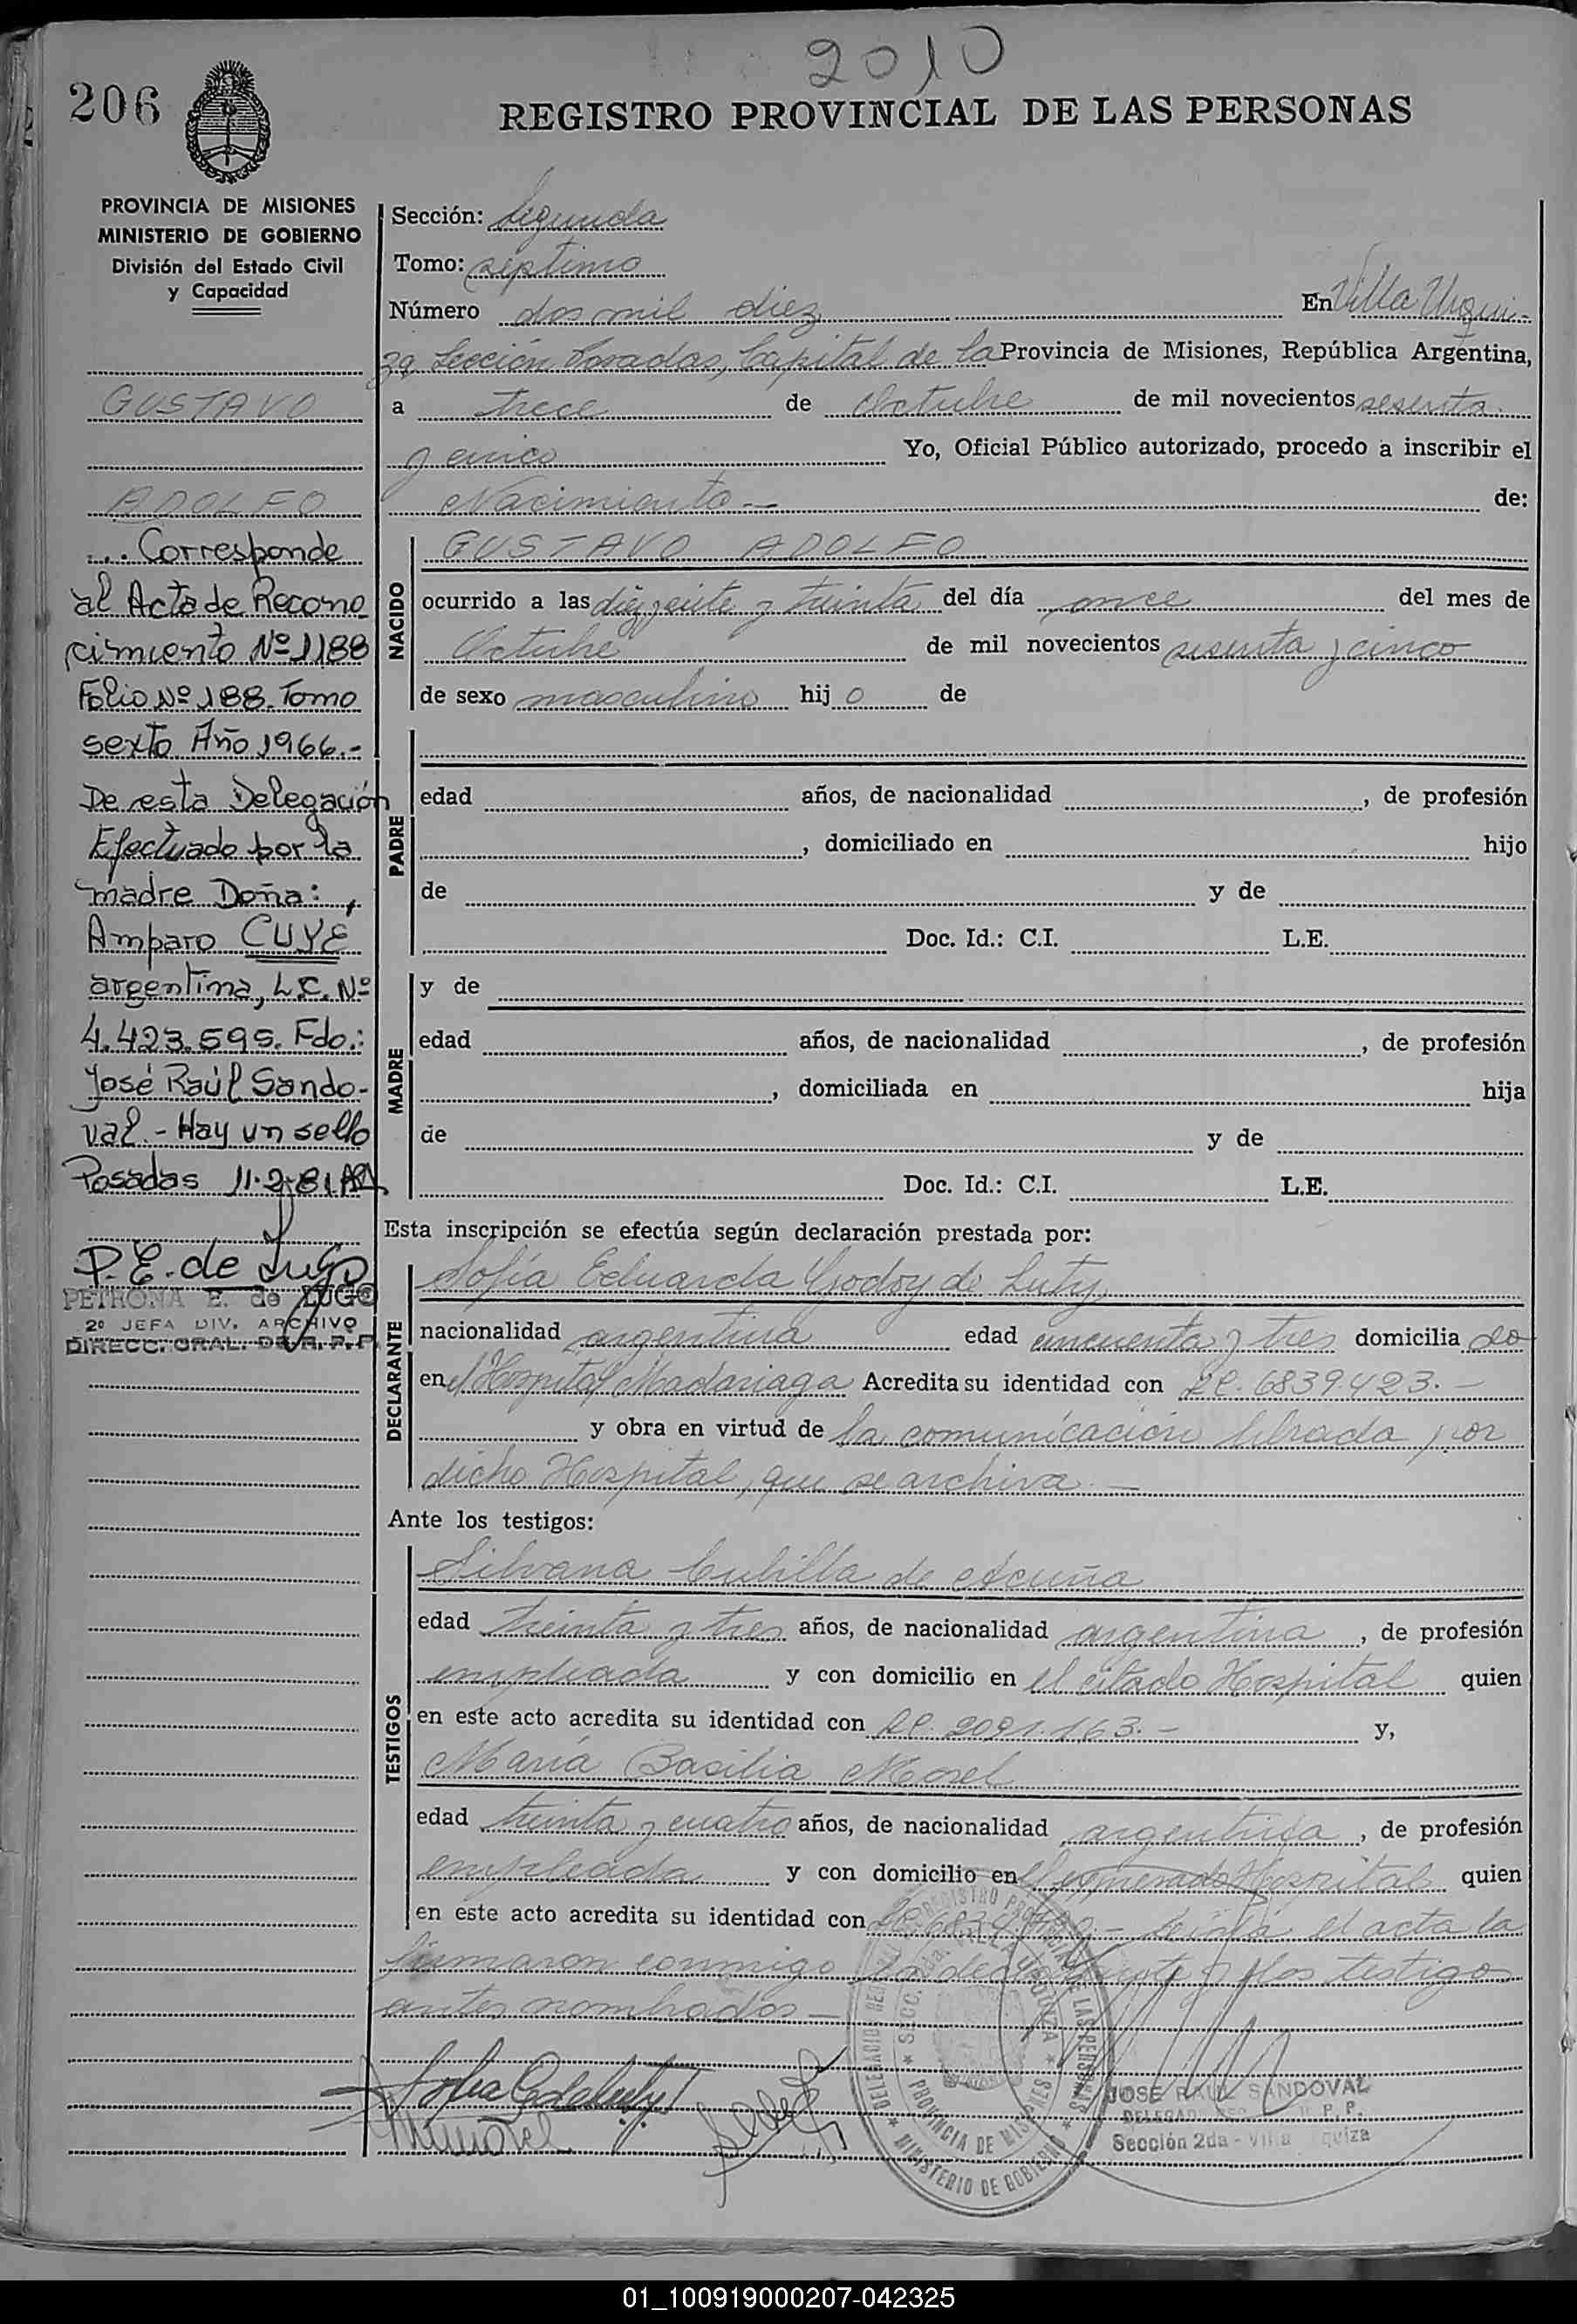 2010
206
REGISTRO PROVINCIAL DE LAS PERSONAS
PROVINCIA DE MISIONES
MINISTERIO DE GOBIERNO
División del Estado Civil
y Capacidad
GUSTAVO
ADOLFO
... Corresponde
al Acta de Recono
cimiento Nº 1188
Folio Nº 188. Tomo
sexto Año 1966.-
De esta Delegación
Efectuado por la
madre Doña:
Amparo CUYE
argentina, L.C. Nº
4.423.595. Fdo.:
José Raúl Sando-
val.- Hay un sello
Posadas 11.2.81.
P.E. de Lugo
PETRONA E. de LUGO
2º JEFA DIV. ARCHIVO
DIRECC. GRAL. DE R. P. P.
Sección: Segunda
Tomo: séptimo
Número dos mil diez En Villa Urqui-
za Sección Posadas, Capital de la Provincia de Misiones, República Argentina,
a trece de Octubre de mil novecientos sesenta
y cinco Yo, Oficial Público autorizado, procedo a inscribir el
Nacimiento.- de:
NACIDO
GUSTAVO ADOLFO
ocurrido a las diez y siete y treinta del día once del mes de
Octubre de mil novecientos sesenta y cinco
de sexo masculino hijo de
PADRE
edad años, de nacionalidad , de profesión
, domiciliado en hijo
de y de
Doc. Id.: C.I. L.E.
MADRE
y de
edad años, de nacionalidad , de profesión
, domiciliada en hija
de y de
Doc. Id.: C.I. L.E.
Esta inscripción se efectúa según declaración prestada por:
DECLARANTE
Sofía Eduarda Godoy de Luty
nacionalidad argentina edad cincuenta y tres domicilia da
en el Hospital Madariaga Acredita su identidad con LC. 6839.423.-
y obra en virtud de la comunicación librada por
dicho Hospital, que se archiva.-
Ante los testigos:
TESTIGOS
Silvana Cubilla de Acuña
edad treinta y tres años, de nacionalidad argentina, de profesión
empleada y con domicilio en el citado Hospital quien
en este acto acredita su identidad con LC. 2091.163.- y,
María Basilia Morel
edad treinta y cuatro años, de nacionalidad argentina, de profesión
empleada y con domicilio en el Hospital quien
en este acto acredita su identidad con el acta la
firmaron conmigo la declarante y los testigos
antes nombrados.-
DELEGACION REGISTRO PROVINCIAL DE LAS PERSONAS
MINISTERIO DE GOBIERNO
SECC. 2da. VILLA URQUIZA
PROVINCIA DE MISIONES
JOSE RAUL SANDOVAL
Sección 2da - Villa Urquiza
01_100919000207-042325